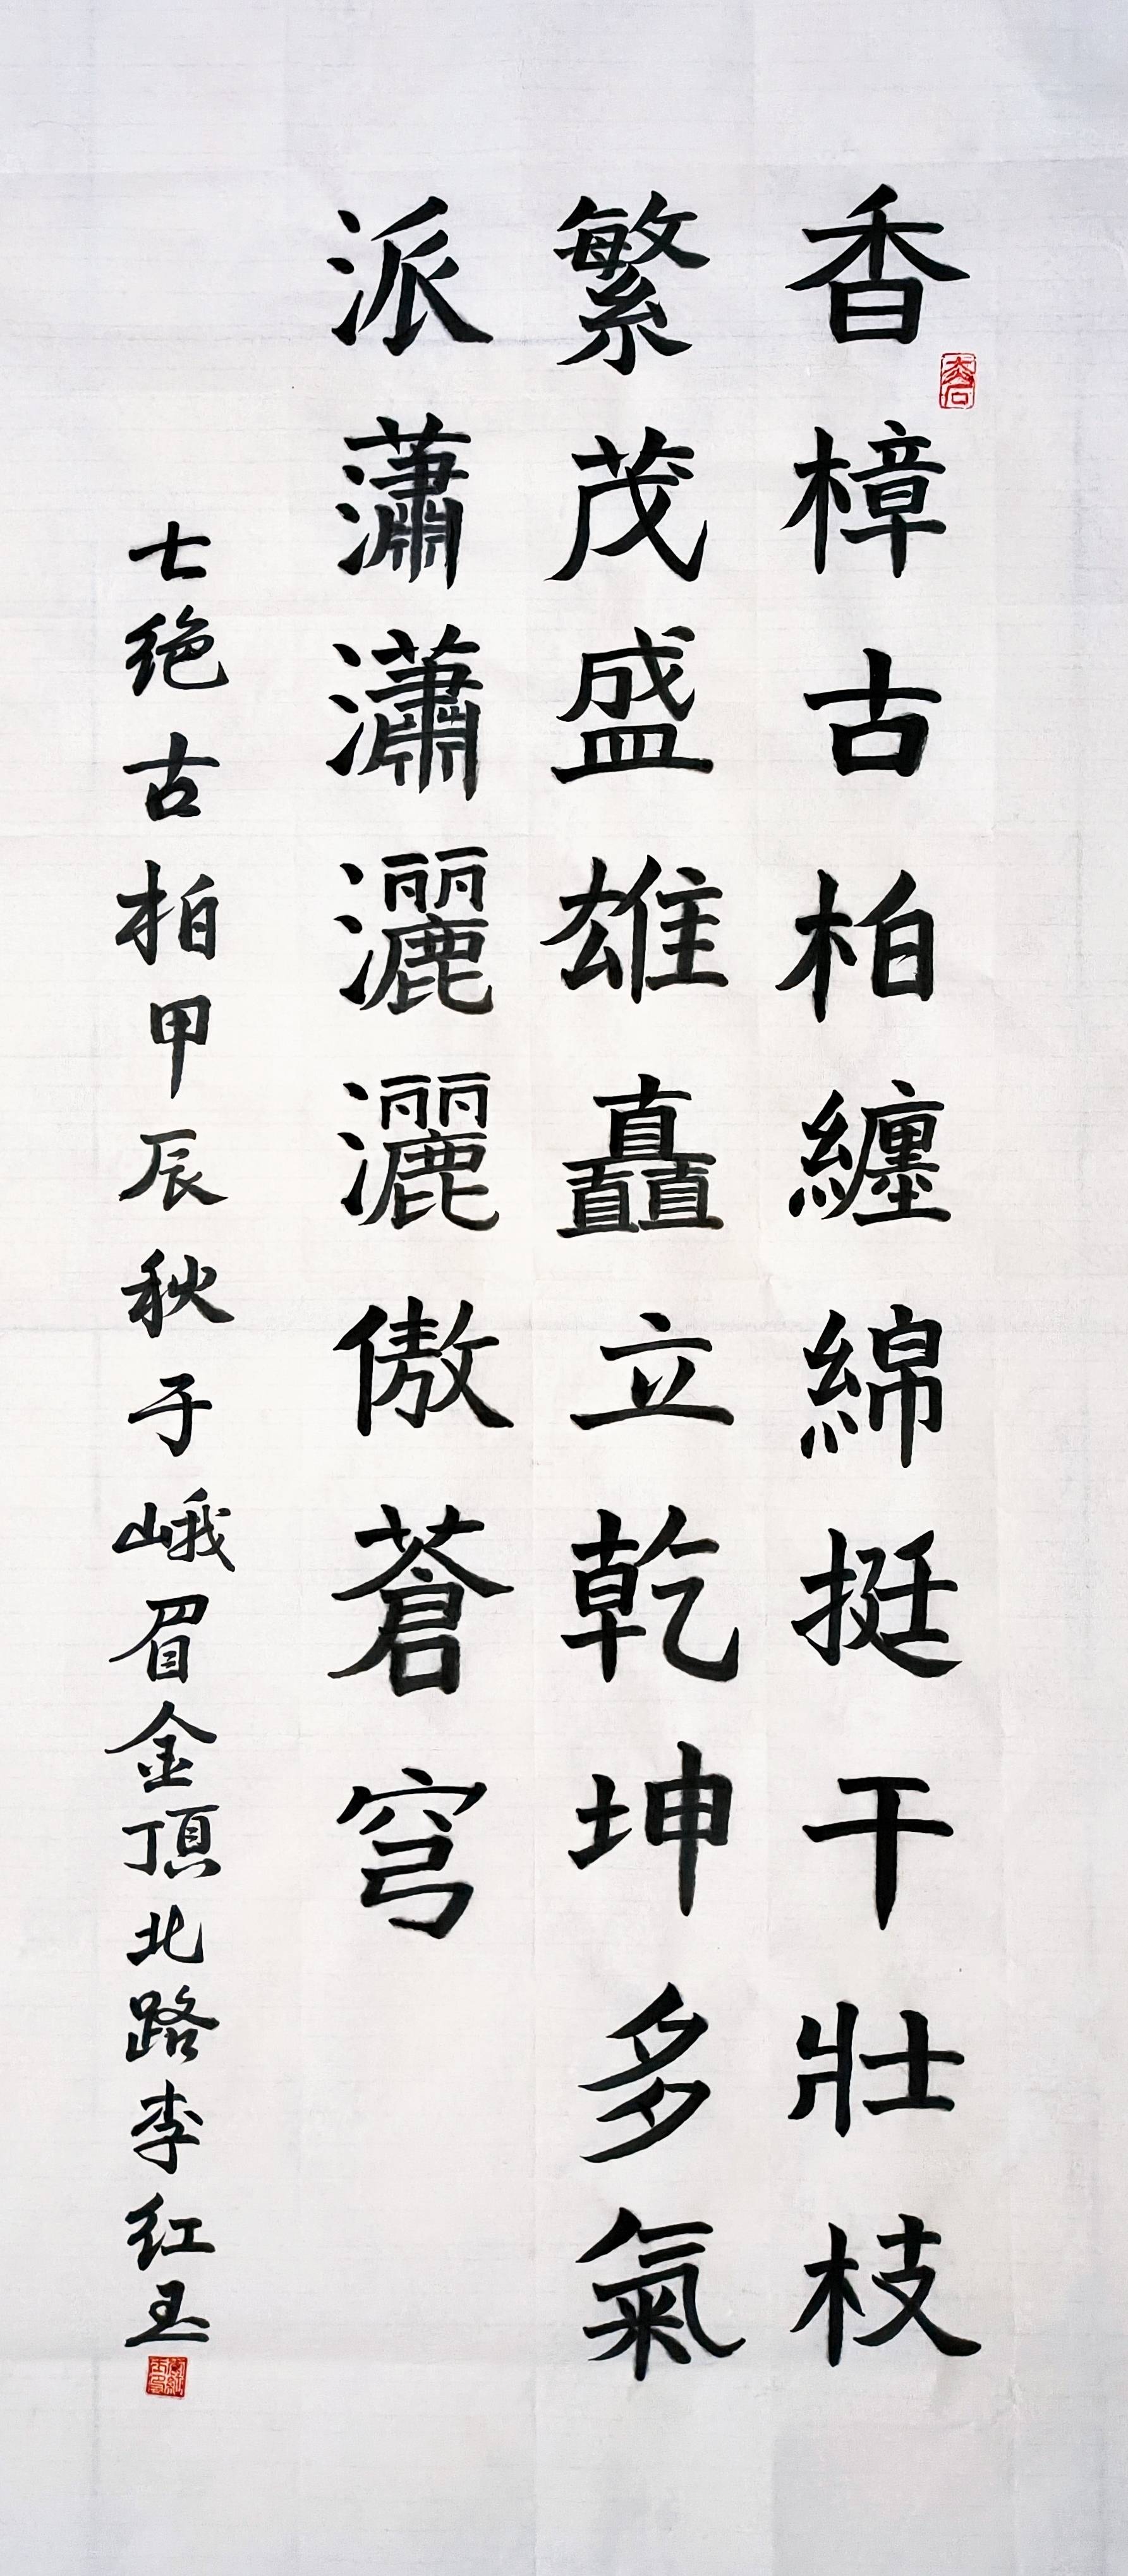 香樟古柏纏綿挺干壯枝
繁茂盛雄矗立乾坤多氣
派瀟瀟灑灑傲蒼穹
七绝古柏甲辰秋于峨眉金頂北路李红玉